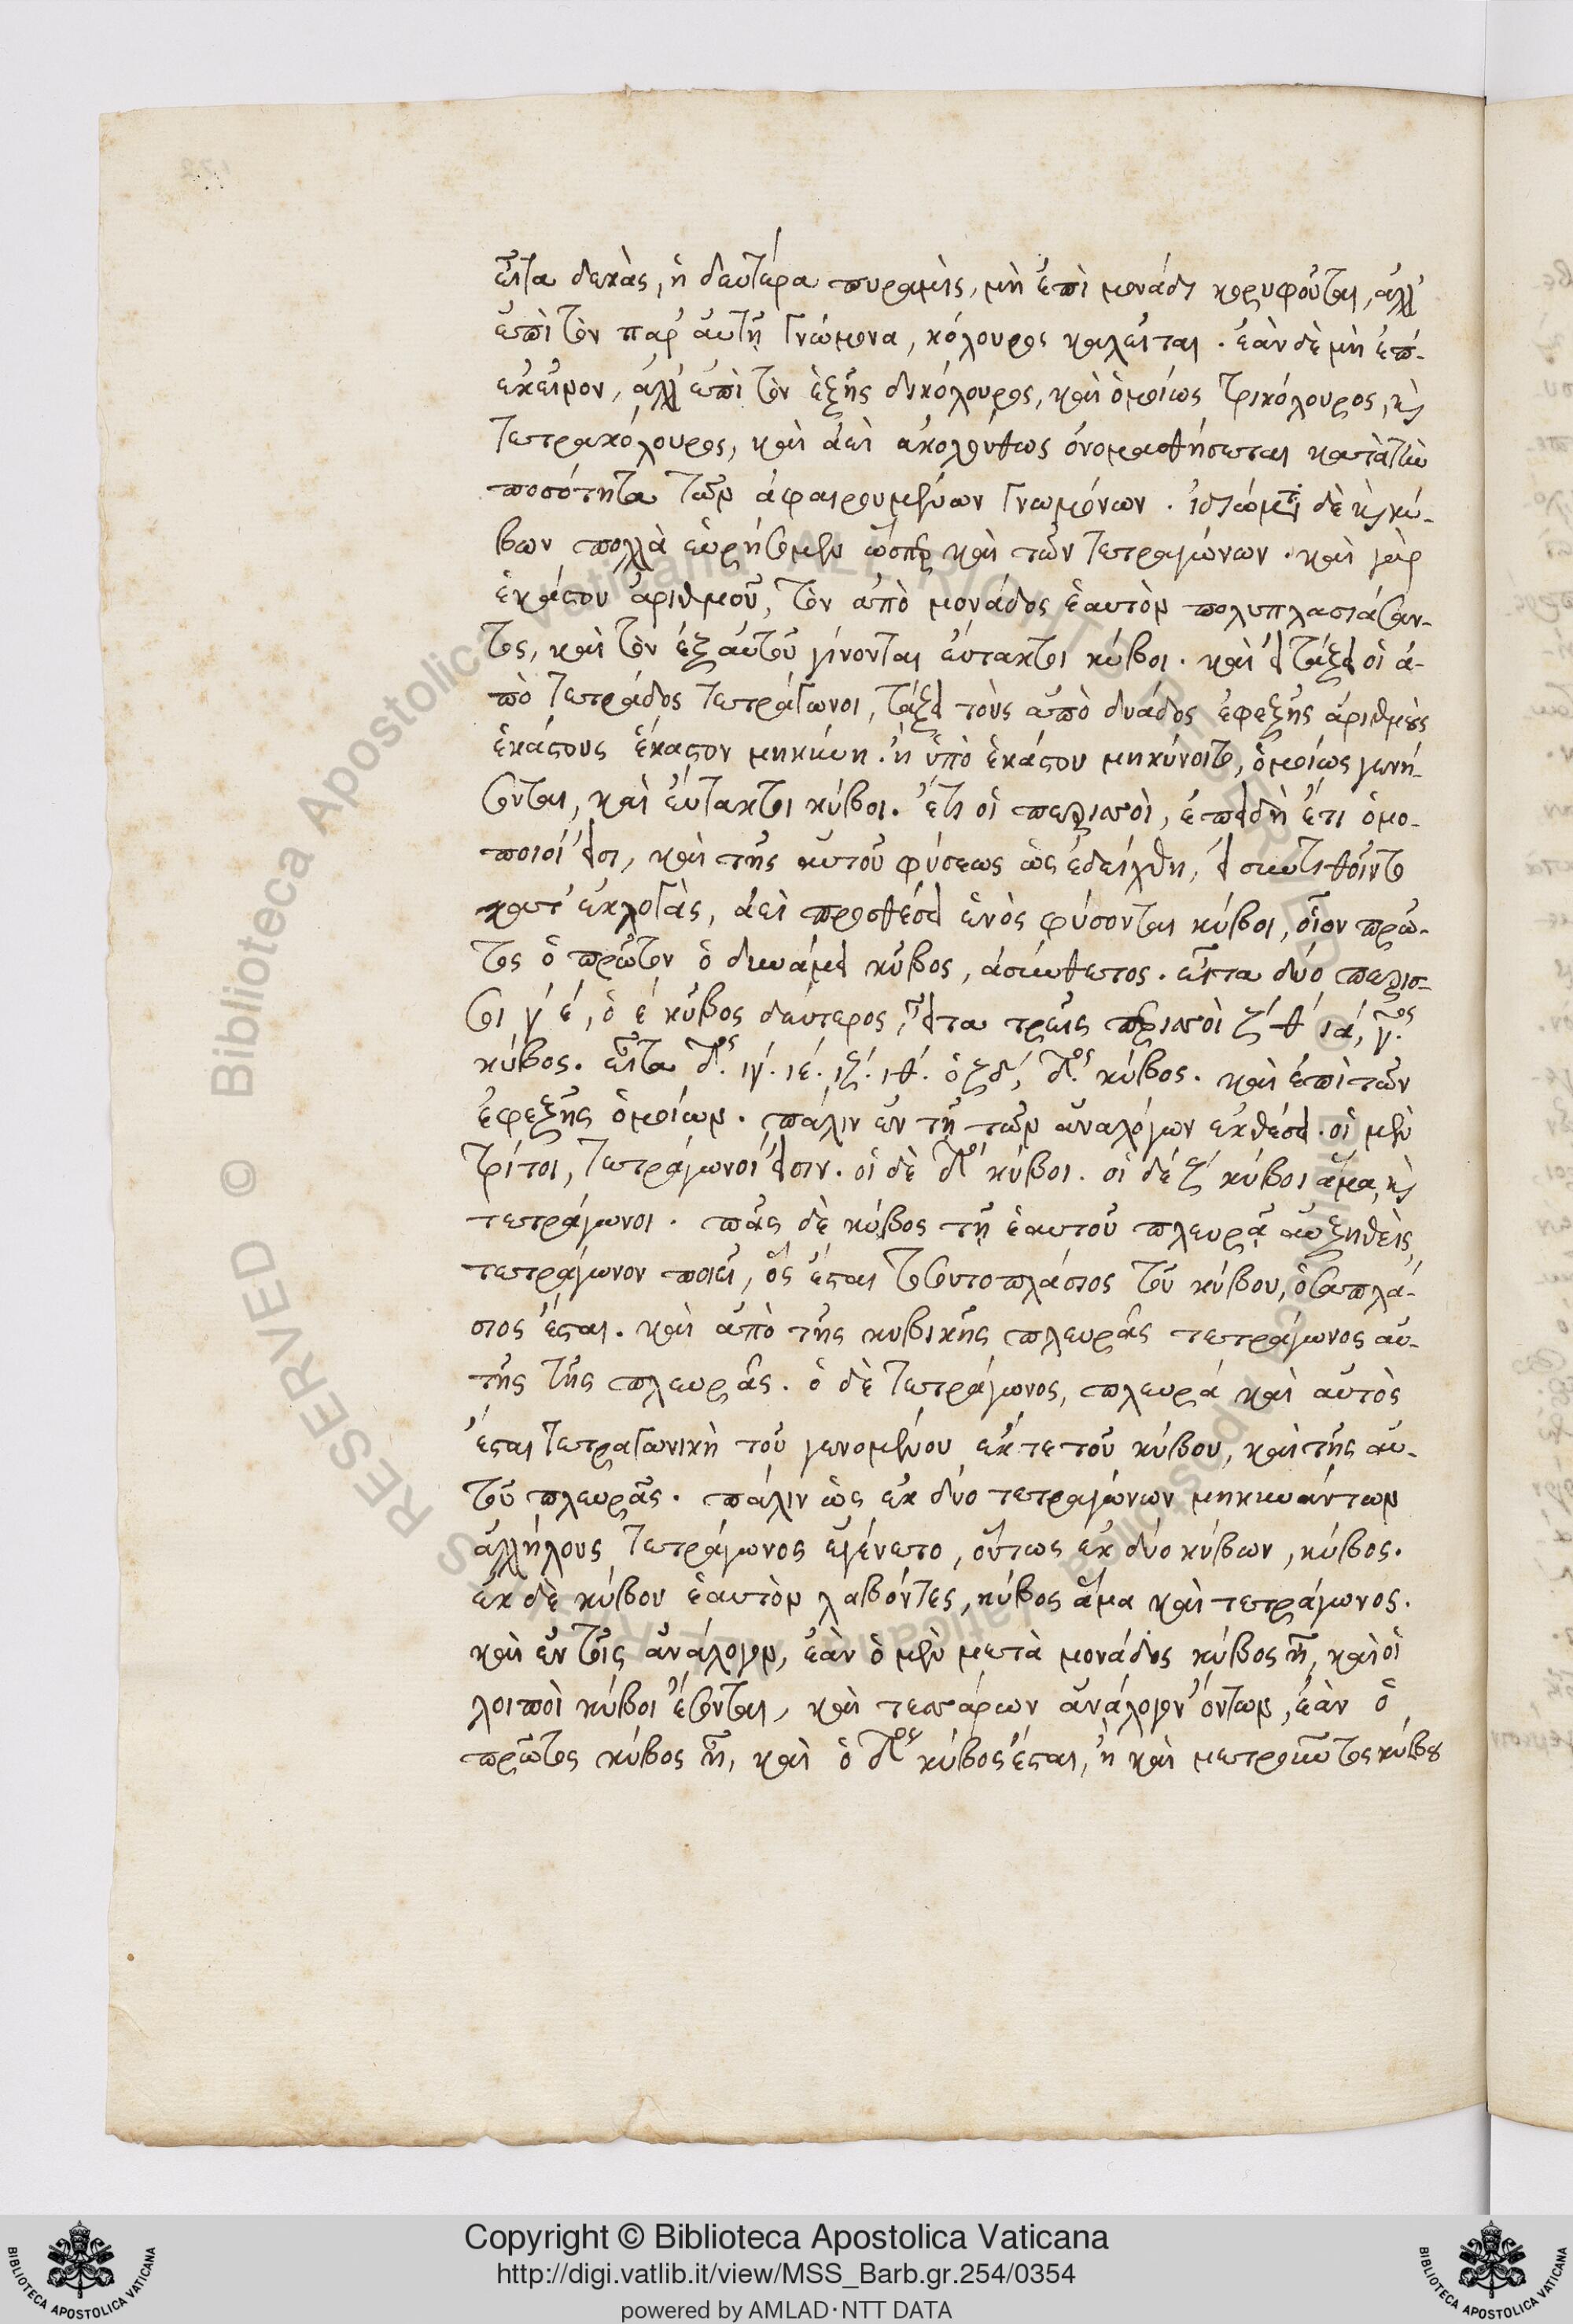 εἶτα δεκὰς, ἡ δευτέρα πυραμὶς, μὴ ἐπὶ μονάδι κορυφοῦται, ἀλλ'
ἐπὶ τὸν παρ' αὐτῇ γνώμονα, κόλουρος καλεῖται. ἐὰν δὲ μὴ ἐπ-
εκεῖνον, ἀλλ' ἐπὶ τὸν ἑξῆς δικόλουρος, καὶ ὁμοίως τρικόλουρος, καὶ
τετρακόλουρος, καὶ ἀεὶ ἀκολούθως ὀνομασθήσεται κατὰ τὴν
ποσότητα τῶν ἀφαιρουμένων γνωμόνων. ἰδιώματα δὲ καὶ κύ-
βων πολλὰ εὑρήσομεν ὥσπερ καὶ τῶν τετραγώνων. καὶ γὰρ
ἑκάστου ἀριθμοῦ, τὸν ἀπὸ μονάδος ἑαυτὸν πολυπλασιάσαν-
τος, καὶ τὸν ἐξ αὐτοῦ γίνονται εὔτακτοι κύβοι. καὶ εἰ τάξει οἱ ἀ-
πὸ τετράδος τετράγωνοι, τάξει τοὺς ἀπὸ δυάδος ἐφεξῆς ἀριθμοὺς
ἑκάστους ἕκαστον μηκύνῃ. ἢ ὑπὸ ἑκάστου μηκύνοιτο, ὁμοίως γενή-
σονται, καὶ εὔτακτοι κύβοι. ἔτι οἱ περισσοὶ, ἐπειδὴ ἔτι ὁμο-
ποιοί εἰσι, καὶ τῆς αὐτοῦ φύσεως ὡς ἐδείχθη, εἰ συντιθοῖντο
κατ' ἐκλογὰς, ἀεὶ προσθέσει ἑνὸς φύσονται κύβοι, οἷον πρῶ-
τος ὁ πρῶτον ὁ δυνάμει κύβος, ἀσύνθετος. εἶτα δύο περισ-
σοι γ' ε', ὁ ε' κύβος δεύτερος, εἶτα τρεῖς περισσοὶ ζ' θ' ια', γ.ος
κύβος. εἶτα δ'. ιγ'. ιε'. ιζ'. ιθ'. ὁ ξδ', δ.ος κύβος. καὶ ἐπὶ τῶν
ἐφεξῆς ὁμοίων. πάλιν ἐν τῇ τῶν ἀναλόγων ἐκθέσει. οἱ μὲν
τρίτοι, τετράγωνοί εἰσιν. οἱ δὲ δ.οι κύβοι. οἱ δέ ζ' κύβοι ἅμα, καὶ
τετράγωνοι. πᾶς δὲ κύβος τῇ ἑαυτοῦ πλευρᾷ αὐξηθεὶς,
τετράγωνον ποιεῖ, ὃς ἔσται τοσουτοπλάσιος τοῦ κύβου, ὁσαπλά-
σιος ἔσται. καὶ ἀπὸ τῆς κυβικῆς πλευρᾶς τετράγωνος αὐ-
τῆς τῆς πλευρᾶς. ὁ δὲ τετράγωνος, πλευρά καὶ αὐτὸς
ἔσται τετραγωνικὴ τοῦ γενομένου ἐκ τε τοῦ κύβου, καὶ τῆς αὐ-
τοῦ πλευρᾶς. πάλιν ὡς ἐκ δύο τετραγώνων μηκυνάντων
ἀλλήλους τετράγωνος ἐγένετο, οὕτως ἐκ δύο κύβων, κύβος.
ἐκ δὲ κύβου ἑαυτὸν λαβόντες, κύβος ἅμα καὶ τετράγωνος.
καὶ ἐν τοῖς ἀνάλογον, ἐὰν ὁ μὲν μετὰ μονάδος κύβος ᾖ, καὶ οἱ
λοιποὶ κύβοι ἔσονται, καὶ τεσσάρων ἀνάλογον ὄντων, ἐὰν ὁ
πρῶτος κύβος ᾖ, καὶ ὁ δ.ος κύβος ἔσται, ἢ καὶ μετροῦντος κύβου
Copyright © Biblioteca Apostolica Vaticana
http://digi.vatlib.it/view/MSS_Barb.gr.254/0354
powered by AMLAD·NTT DATA
BIBLIOTECA APOSTOLICA VATICANA
BIBLIOTECA APOSTOLICA VATICANA